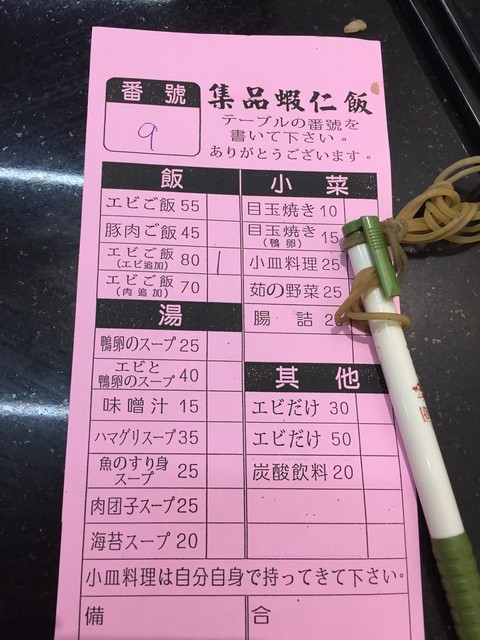 番號
9
集品蝦仁飯
テーブルの番號を
書いて下さい。
ありがとうございます。
飯
エビご飯 55
豚肉ご飯 45
エビご飯 80 1
(エビ追加)
エビご飯 70
(肉追加)
湯
鴨卵のスープ 25
エビと
鴨卵のスープ 40
味噌汁 15
ハマグリスープ 35
魚のすり身
スープ 25
肉団子スープ 25
海苔スープ 20
小菜
目玉焼き 10
目玉焼き 15
(鴨卵)
小皿料理 25
茹の野菜 25
腸詰
其他
エビだけ 30
エビだけ 50
炭酸飲料 20
小皿料理は自分自身で持ってきて下さい。
備
合